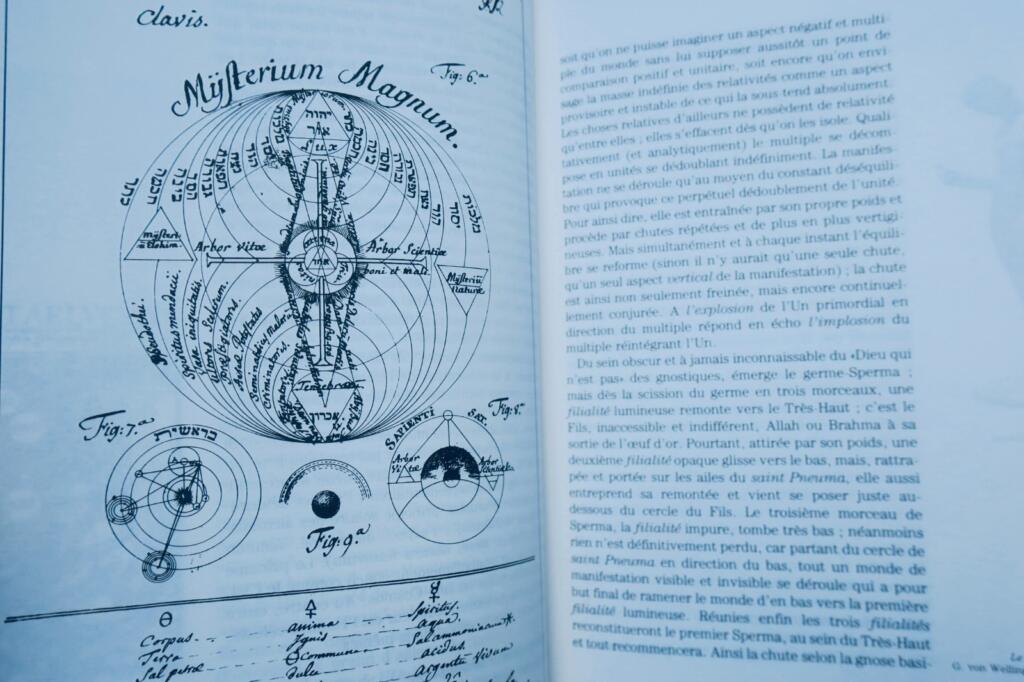 Clavis.
Mÿsterium Magnum.
Fig: 6.a
יהוה
אור
Lux
כתר
חכמה
בינה
חסד
גבורה
תפארת
נצח
הוד
יסוד
מלכות
Arbor Vitæ
Arbor Scientiæ
boni et mali.
Mÿsteriū
Naturæ
Pseudothei.
Spiritus mendacii.
Vasa iniquitatis.
Ultores Scelerum.
Præstigiatores.
Aereæ Potestates
Criminatores.
Tenebræ
Fig: 7.a
בראשית
Fig: 9.a
SAPIENTI
SAT.
Fig: 8.a
Arbor
Vitæ
Arbor
Corpus. Anima Spiritus.
Terra Ignis Aqua.
Sal petræ dulce acidus.
Argentū Vivum
soit qu'on ne puisse imaginer un aspect négatif et multi-
ple du monde sans lui supposer aussitôt un point de
comparaison positif et unitaire, soit encore qu'on envi-
sage la masse indéfinie des relativités comme un aspect
provisoire et instable de ce qui la sous-tend absolument.
Les choses relatives d'ailleurs ne possèdent de relativité
qu'entre elles ; elles s'effacent dès qu'on les isole. Quali-
tativement (et analytiquement) le multiple se décom-
pose en unités se dédoublant indéfiniment. La manifes-
tation ne se déroule qu'au moyen du constant déséquili-
bre qui provoque ce perpétuel dédoublement de l'unité.
Pour ainsi dire, elle est entraînée par son propre poids et
procède par chutes répétées et de plus en plus vertigi-
neuses. Mais simultanément et à chaque instant l'équili-
bre se reforme (sinon il n'y aurait qu'une seule chute,
qu'un seul aspect vertical de la manifestation) ; la chute
est ainsi non seulement freinée, mais encore continuel-
lement conjurée. A l'explosion de l'Un primordial en
direction du multiple répond en écho l'implosion du
multiple réintégrant l'Un.
Du sein obscur et à jamais inconnaissable du «Dieu qui
n'est pas» des gnostiques, émerge le germe-Sperma ;
mais dès la scission du germe en trois morceaux, une
filialité lumineuse remonte vers le Très-Haut ; c'est le
Fils, inaccessible et indifférent, Allah ou Brahma à sa
sortie de l'œuf d'or. Pourtant, attirée par son poids, une
deuxième filialité opaque glisse vers le bas, mais, rattra-
pée et portée sur les ailes du saint Pneuma, elle aussi
entreprend sa remontée et vient se poser juste au-
dessous du cercle du Fils. Le troisième morceau de
Sperma, la filialité impure, tombe très bas ; néanmoins
rien n'est définitivement perdu, car partant du cercle de
saint Pneuma en direction du bas, tout un monde de
manifestation visible et invisible se déroule qui a pour
but final de ramener le monde d'en bas vers la première
filialité lumineuse. Réunies enfin les trois filialités
reconstitueront le premier Sperma, au sein du Très-Haut
et tout recommencera. Ainsi la chute selon la gnose basi-
Le
G. von Welling